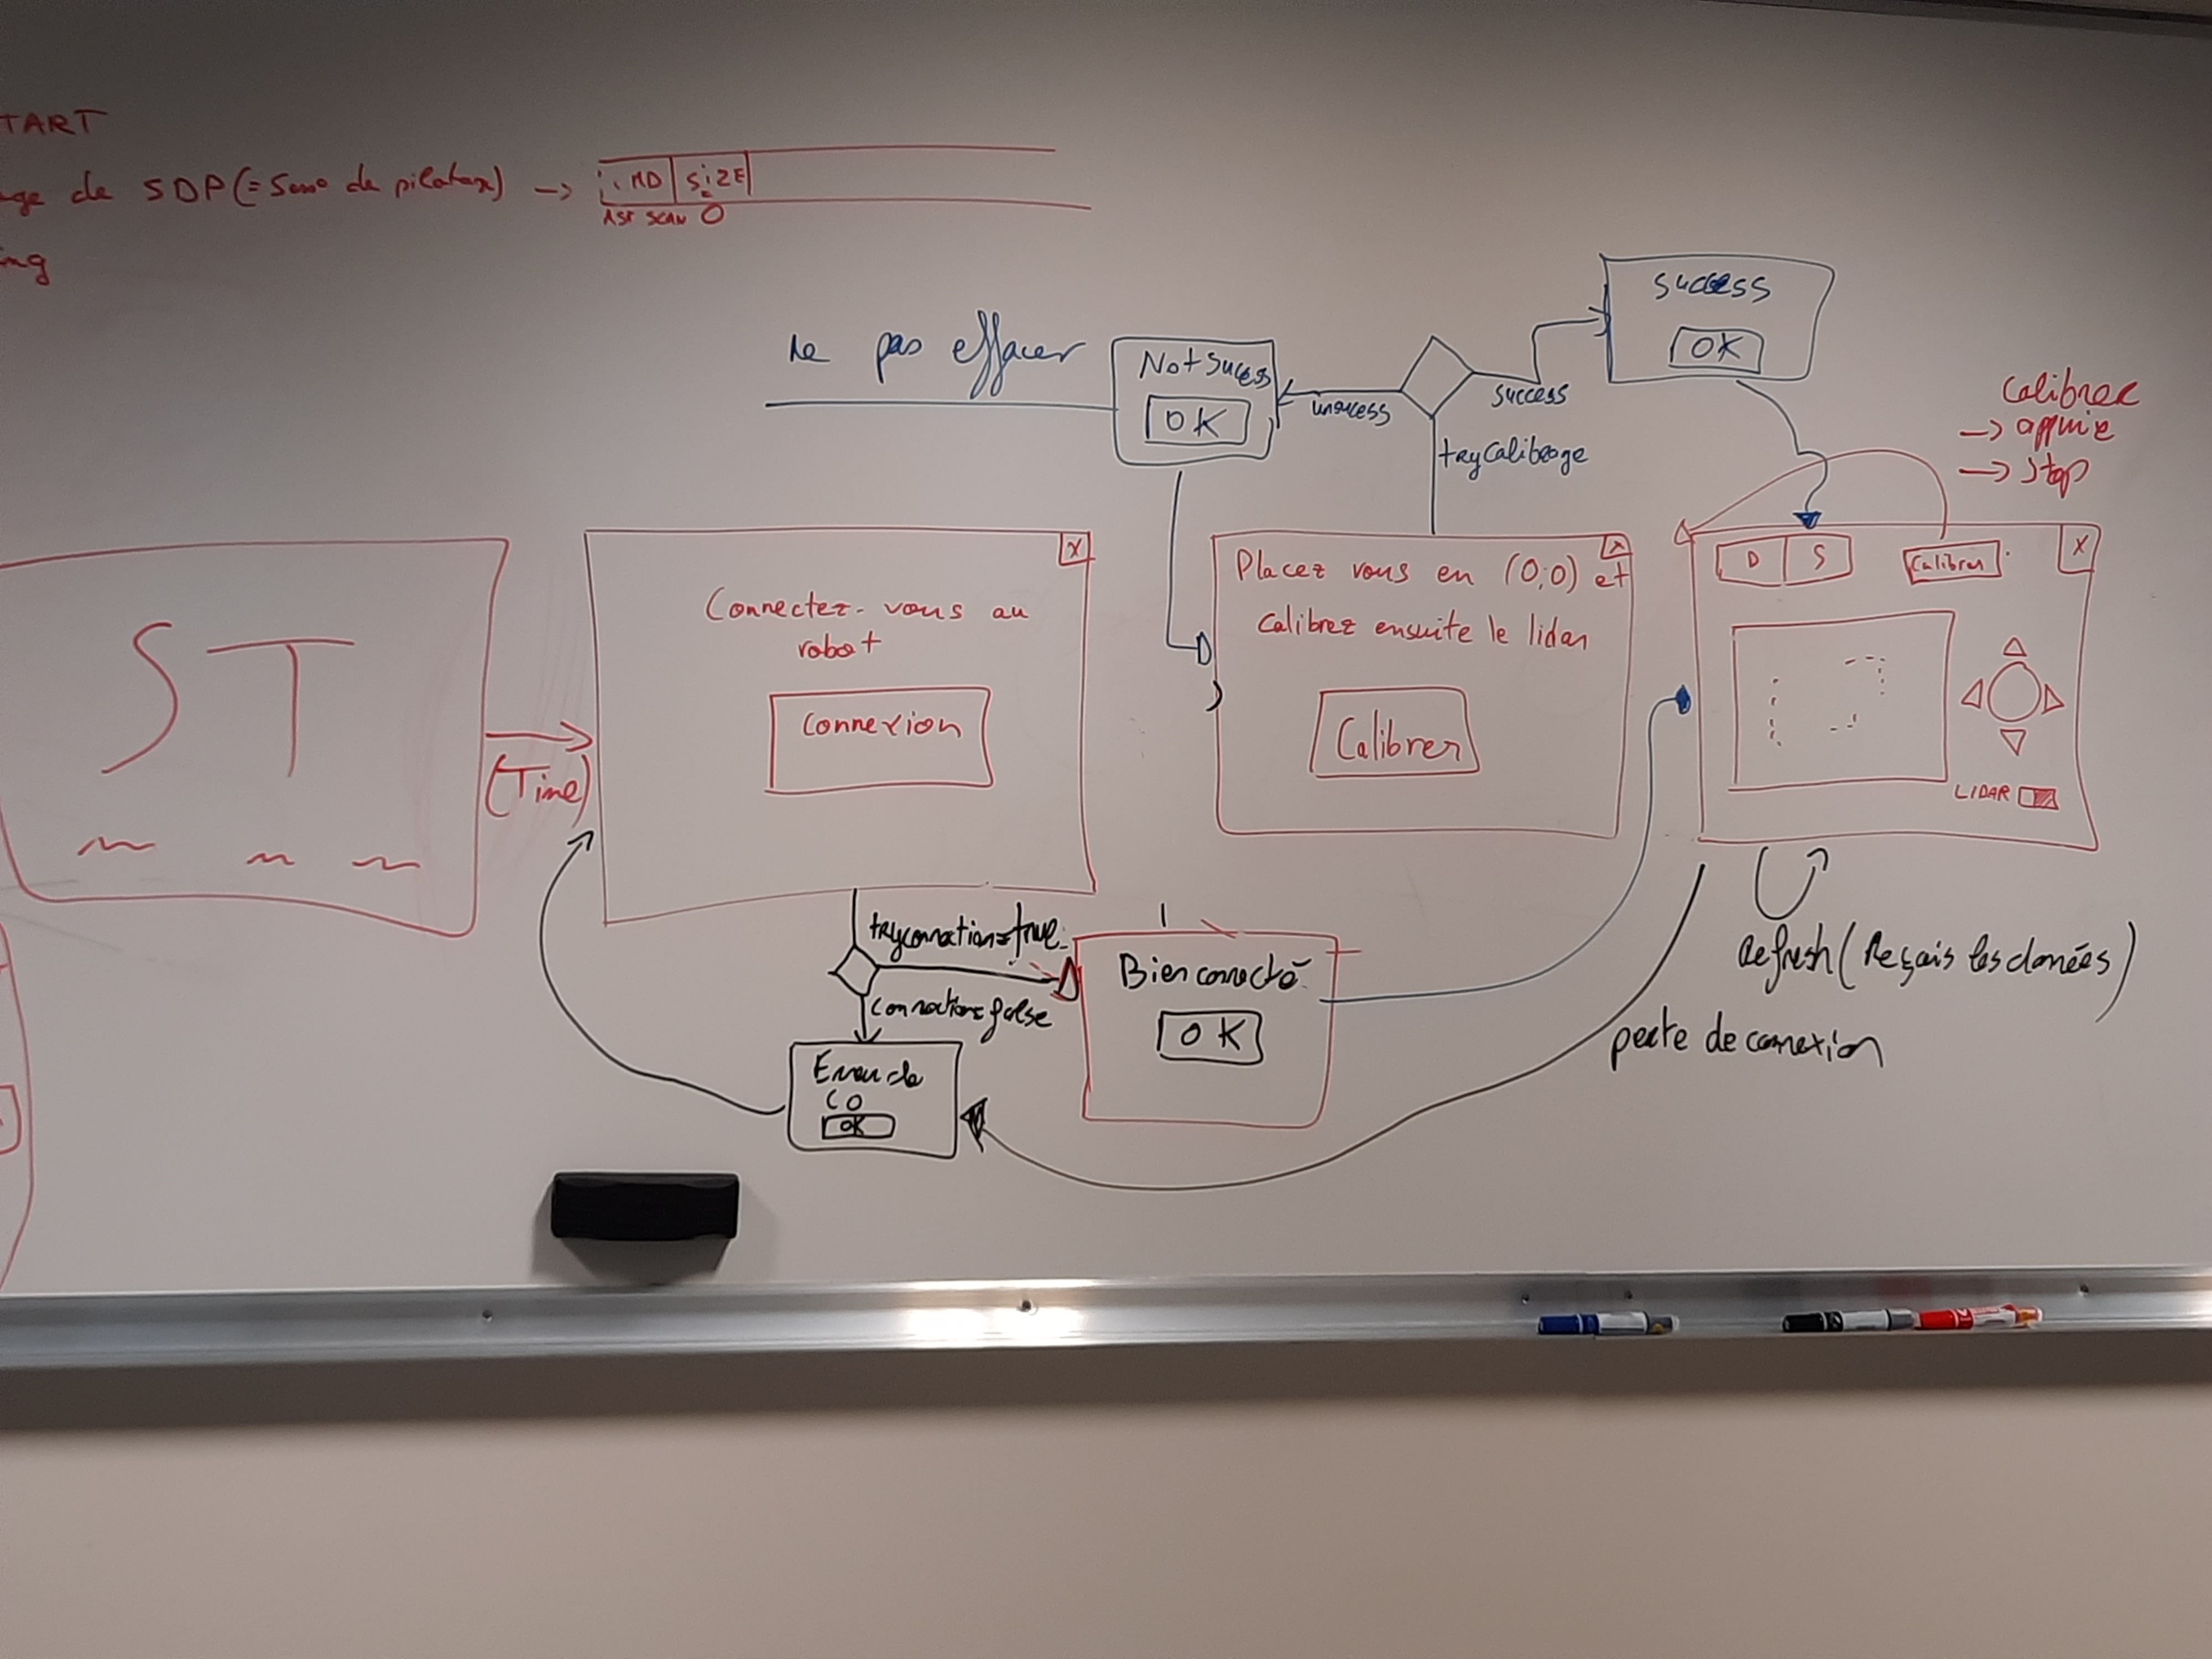 TART
de SDP (= de ) -> MD SiZE
SCAN 0
ng
Ne pas effacer
Not Sucess
OK
unsucess
success
success
OK
tryCalibrage
Calibrer
-> appuie
-> Stop
ST
(Time)
X
Connectez-vous au
robot
Connexion
X
Placez vous en (0;0) et
Calibrez ensuite le lidar
Calibrer
D S
Calibrer
X
LIDAR
tryconnection=true
connection=false
Bien connecté
OK
Erreur de
CO
OK
Refresh (Reçais les données)
perte de connexion